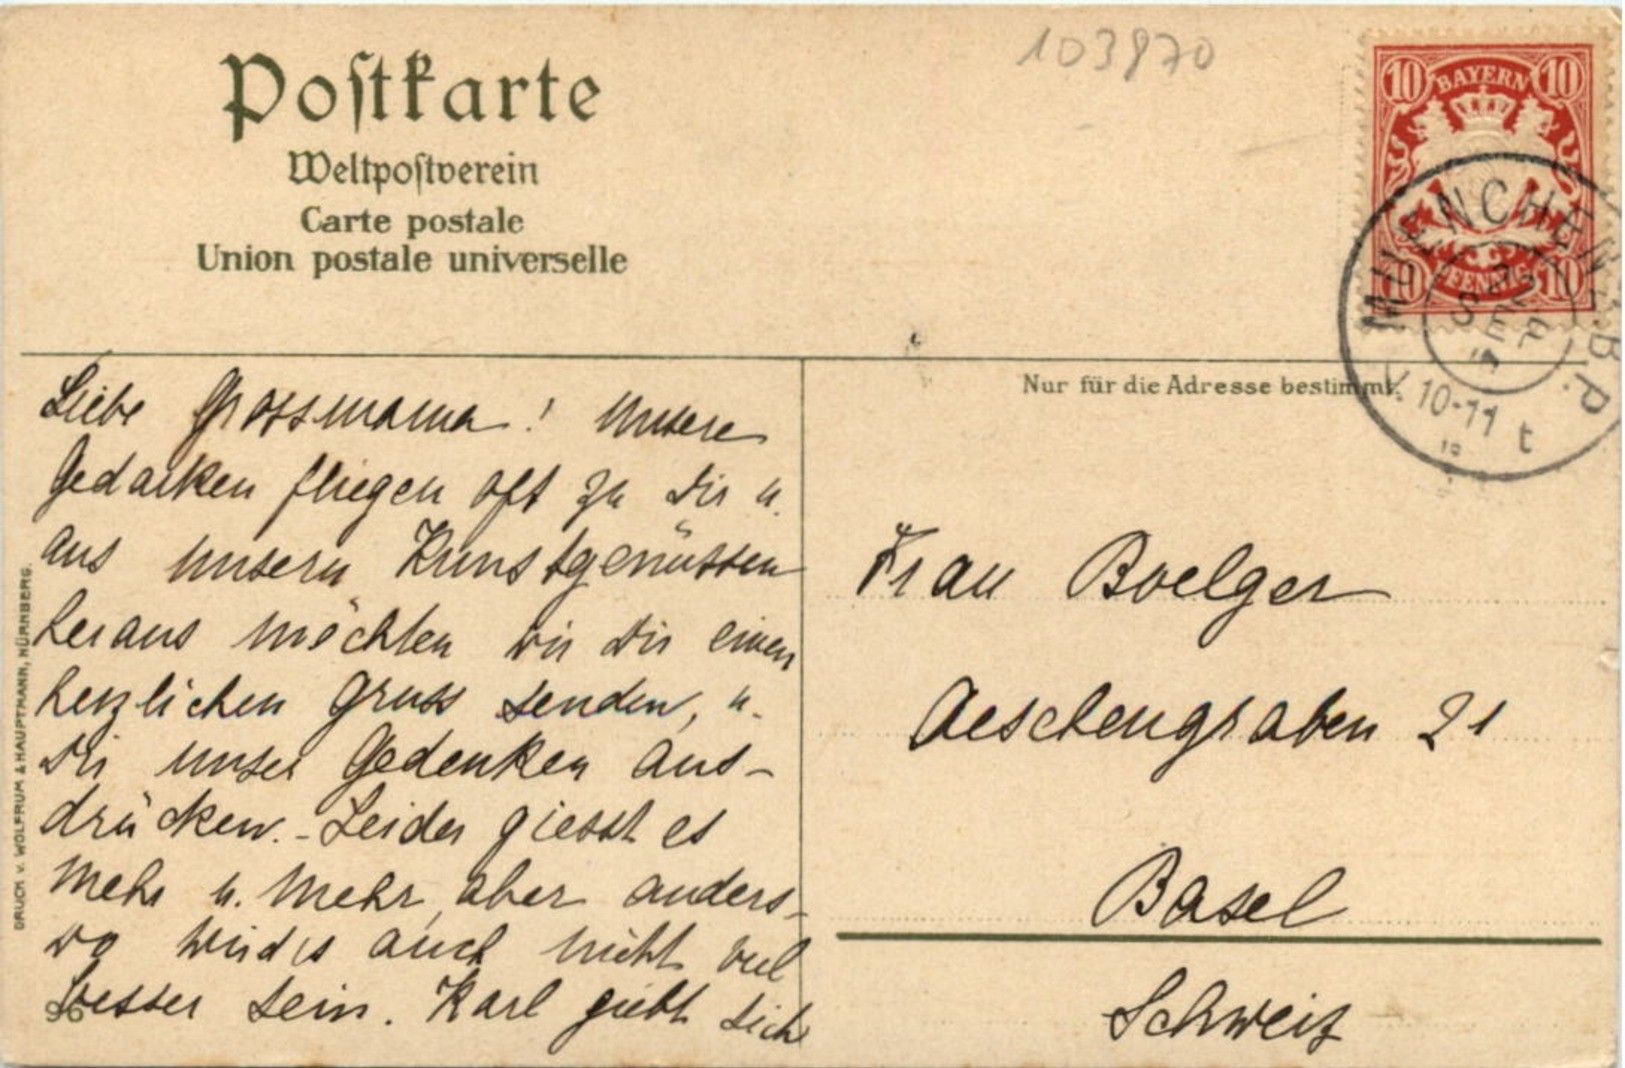 103870
Postkarte
Weltpostverein
Carte postale
Union postale universelle
10 BAYERN 10
10 PFENNIG 10
MUENCHEN B.P.
SEP
10-11
t
Nur für die Adresse bestimmt.
Liebe Grossmama! Unsere
Gedanken fliegen oft zu Dir u.
aus unsern Kunstgenüssen
heraus möchten wir Dir einen
herzlichen Gruss senden, u.
Dir unser Gedenken aus-
drücken. - Leider giesst es
mehr u. mehr, aber anders-
wo wird's auch nicht viel
besser sein. Karl giebt sich
96
Frau Boelger
Aeschengraben 21
Basel
Schweiz
DRUCK v. WOLFRUM & HAUPTMANN, NÜRNBERG.